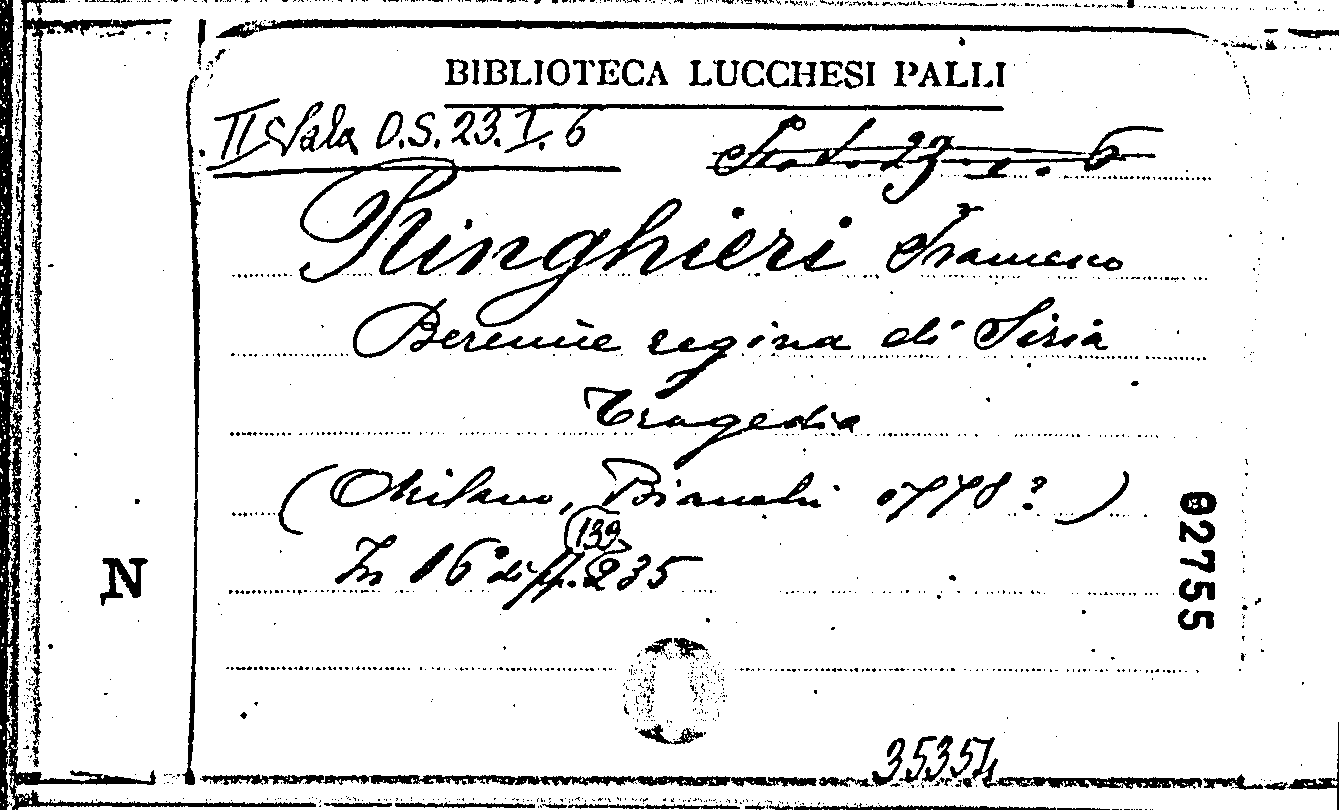 BIBLIOTECA LUCCHESI PALLI
II Sala O.S. 23. I. 6
23. I. 6
Ringhieri Francesco
Berenice regina di Siria
Tragedia
(Milano, Bianchi 1778?)
139
In 16° di pp. 235
N
02755
35354